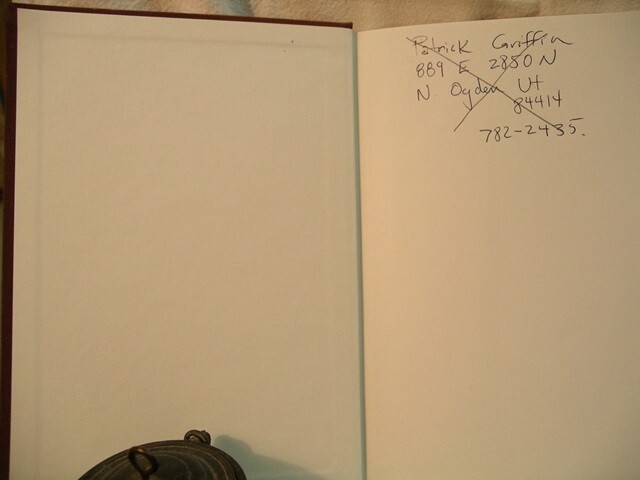 Patrick Griffin
889 E 2880 N
N. Ogden Ut
84414
782-2435.